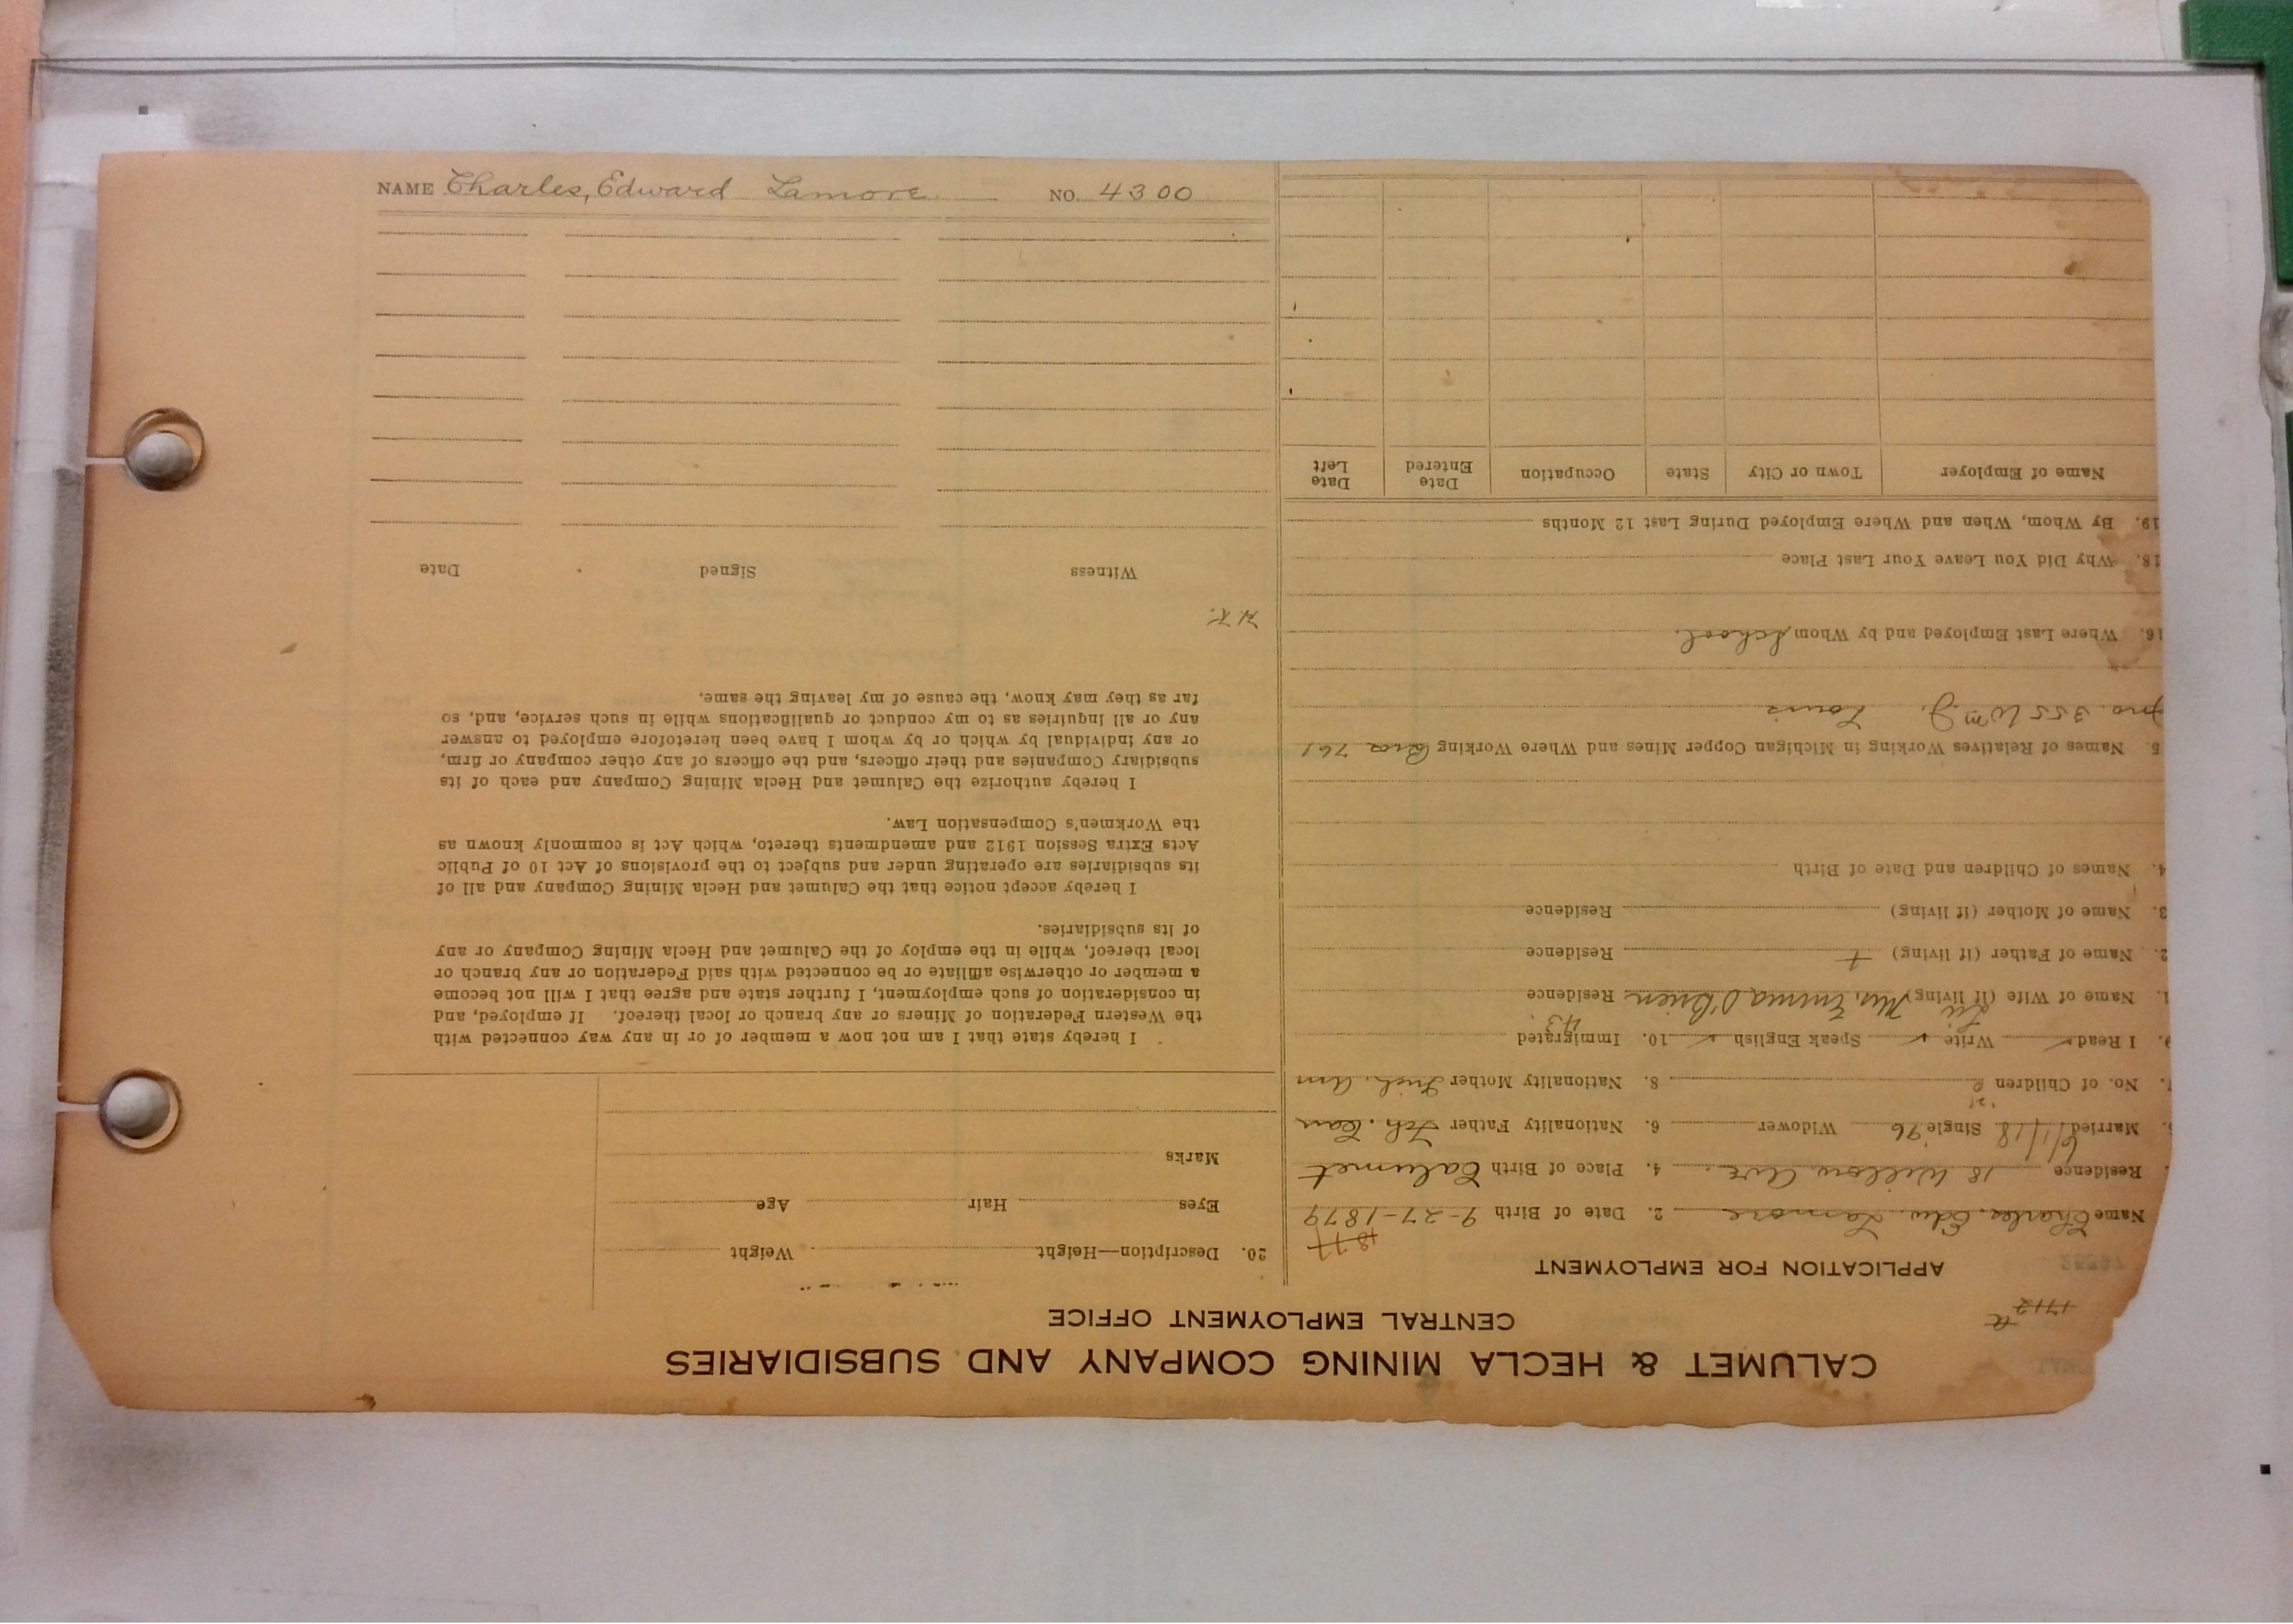 CALUMET & HECLA MINING COMPANY AND SUBSIDIARIES
CENTRAL EMPLOYMENT OFFICE
1712
APPLICATION FOR EMPLOYMENT
1877
Name Charles, Edw. Lamore 2. Date of Birth 9-27-1879
Residence 18 Willow Ave. 4. Place of Birth Calumet
Married 6/1/18 Single '96 Widower 6. Nationality Father Fch. Can
7. No. of Children 2 8. Nationality Mother Irish. Am
9. I Read ✓ Write ✓ Speak English ✓ 10. Immigrated
1. Name of Wife (if living) Mrs. Emma O'Brien Residence
2. Name of Father (if living) † Residence
3. Name of Mother (if living) Residence
4. Names of Children and Date of Birth
5. Names of Relatives Working in Michigan Copper Mines and Where Working 761
355 Wm J. Louis
16. Where Last Employed and by Whom School.
18. Why Did You Leave Your Last Place
19. By Whom, When and Where Employed During Last 12 Months
Name of Employer Town or City State Occupation Date Entered Date Left
20. Description—Height Weight
Eyes Hair Age
Marks
I hereby state that I am not now a member of or in any way connected with
the Western Federation of Miners or any branch or local thereof. If employed, and
in consideration of such employment, I further state and agree that I will not become
a member or otherwise affiliate or be connected with said Federation or any branch or
local thereof, while in the employ of the Calumet and Hecla Mining Company or any
of its subsidiaries.
I hereby accept notice that the Calumet and Hecla Mining Company and all of
its subsidiaries are operating under and subject to the provisions of Act 10 of Public
Acts Extra Session 1912 and amendments thereto, which Act is commonly known as
the Workmen's Compensation Law.
I hereby authorize the Calumet and Hecla Mining Company and each of its
subsidiary Companies and their officers, and the officers of any other company or firm,
or any individual by which or by whom I have been heretofore employed to answer
any or all inquiries as to my conduct or qualifications while in such service, and, so
far as they may know, the cause of my leaving the same.
Witness Signed Date
NAME Charles, Edward Lamore NO. 4300